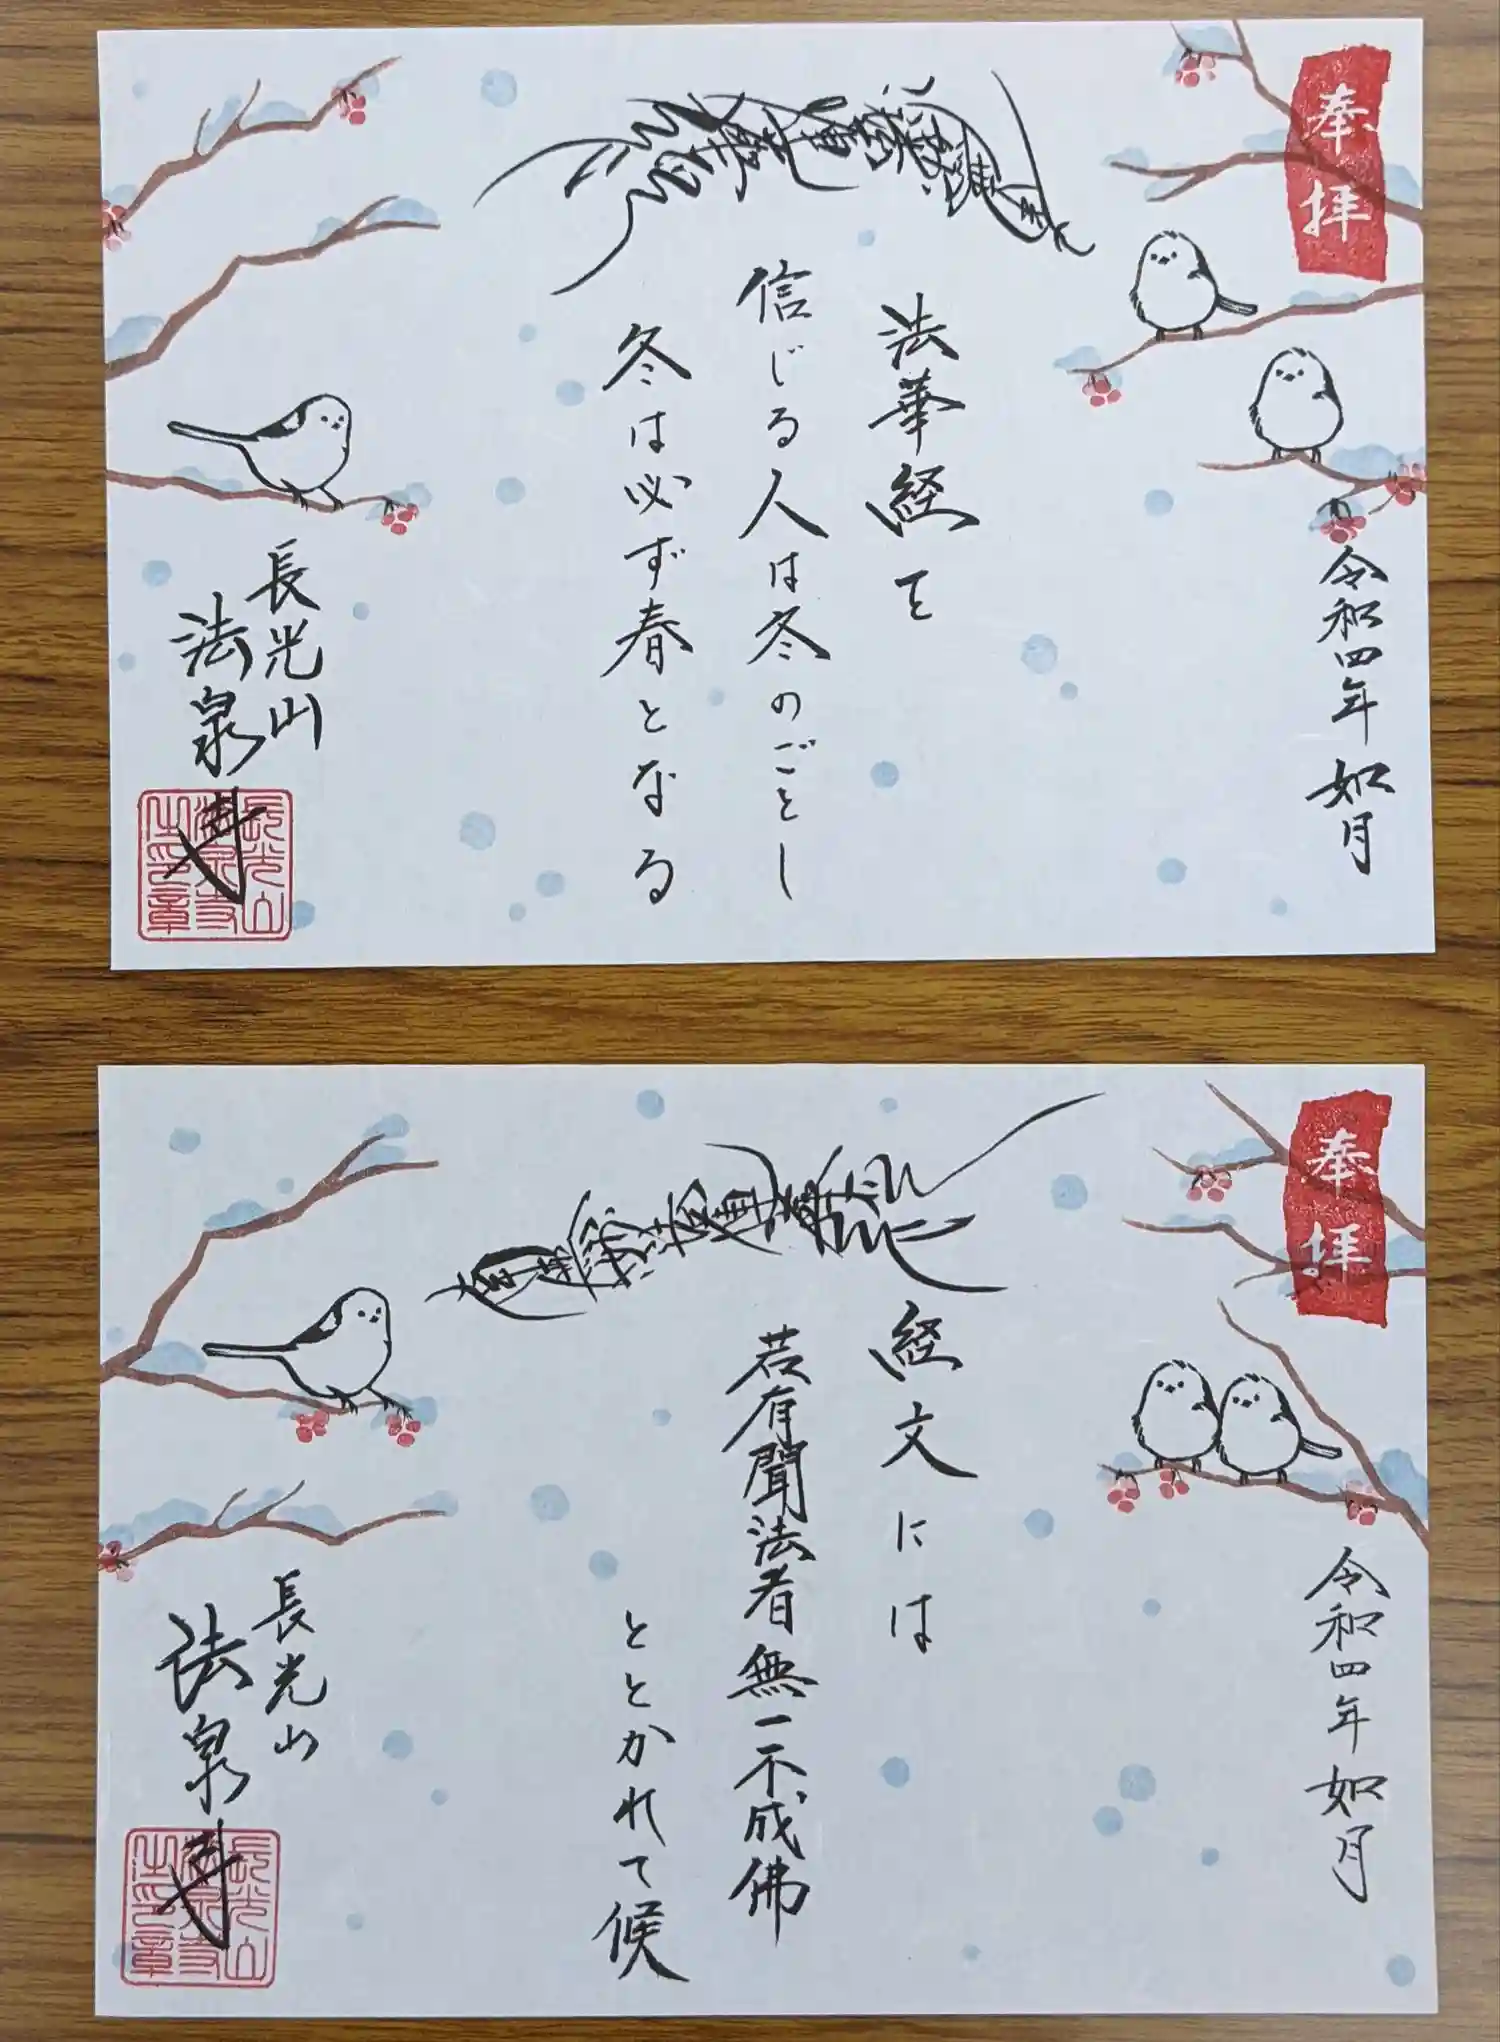 奉拝
令和四年如月
南無妙法蓮華経
法華経を
信じる人は冬のごとし
冬は必ず春となる
長光山
法泉寺
長光山
法泉寺
之印章
奉拝
令和四年如月
南無妙法蓮華経
経文には
若有聞法者無一不成佛
ととかれて候
長光山
法泉寺
長光山
法泉寺
之印章